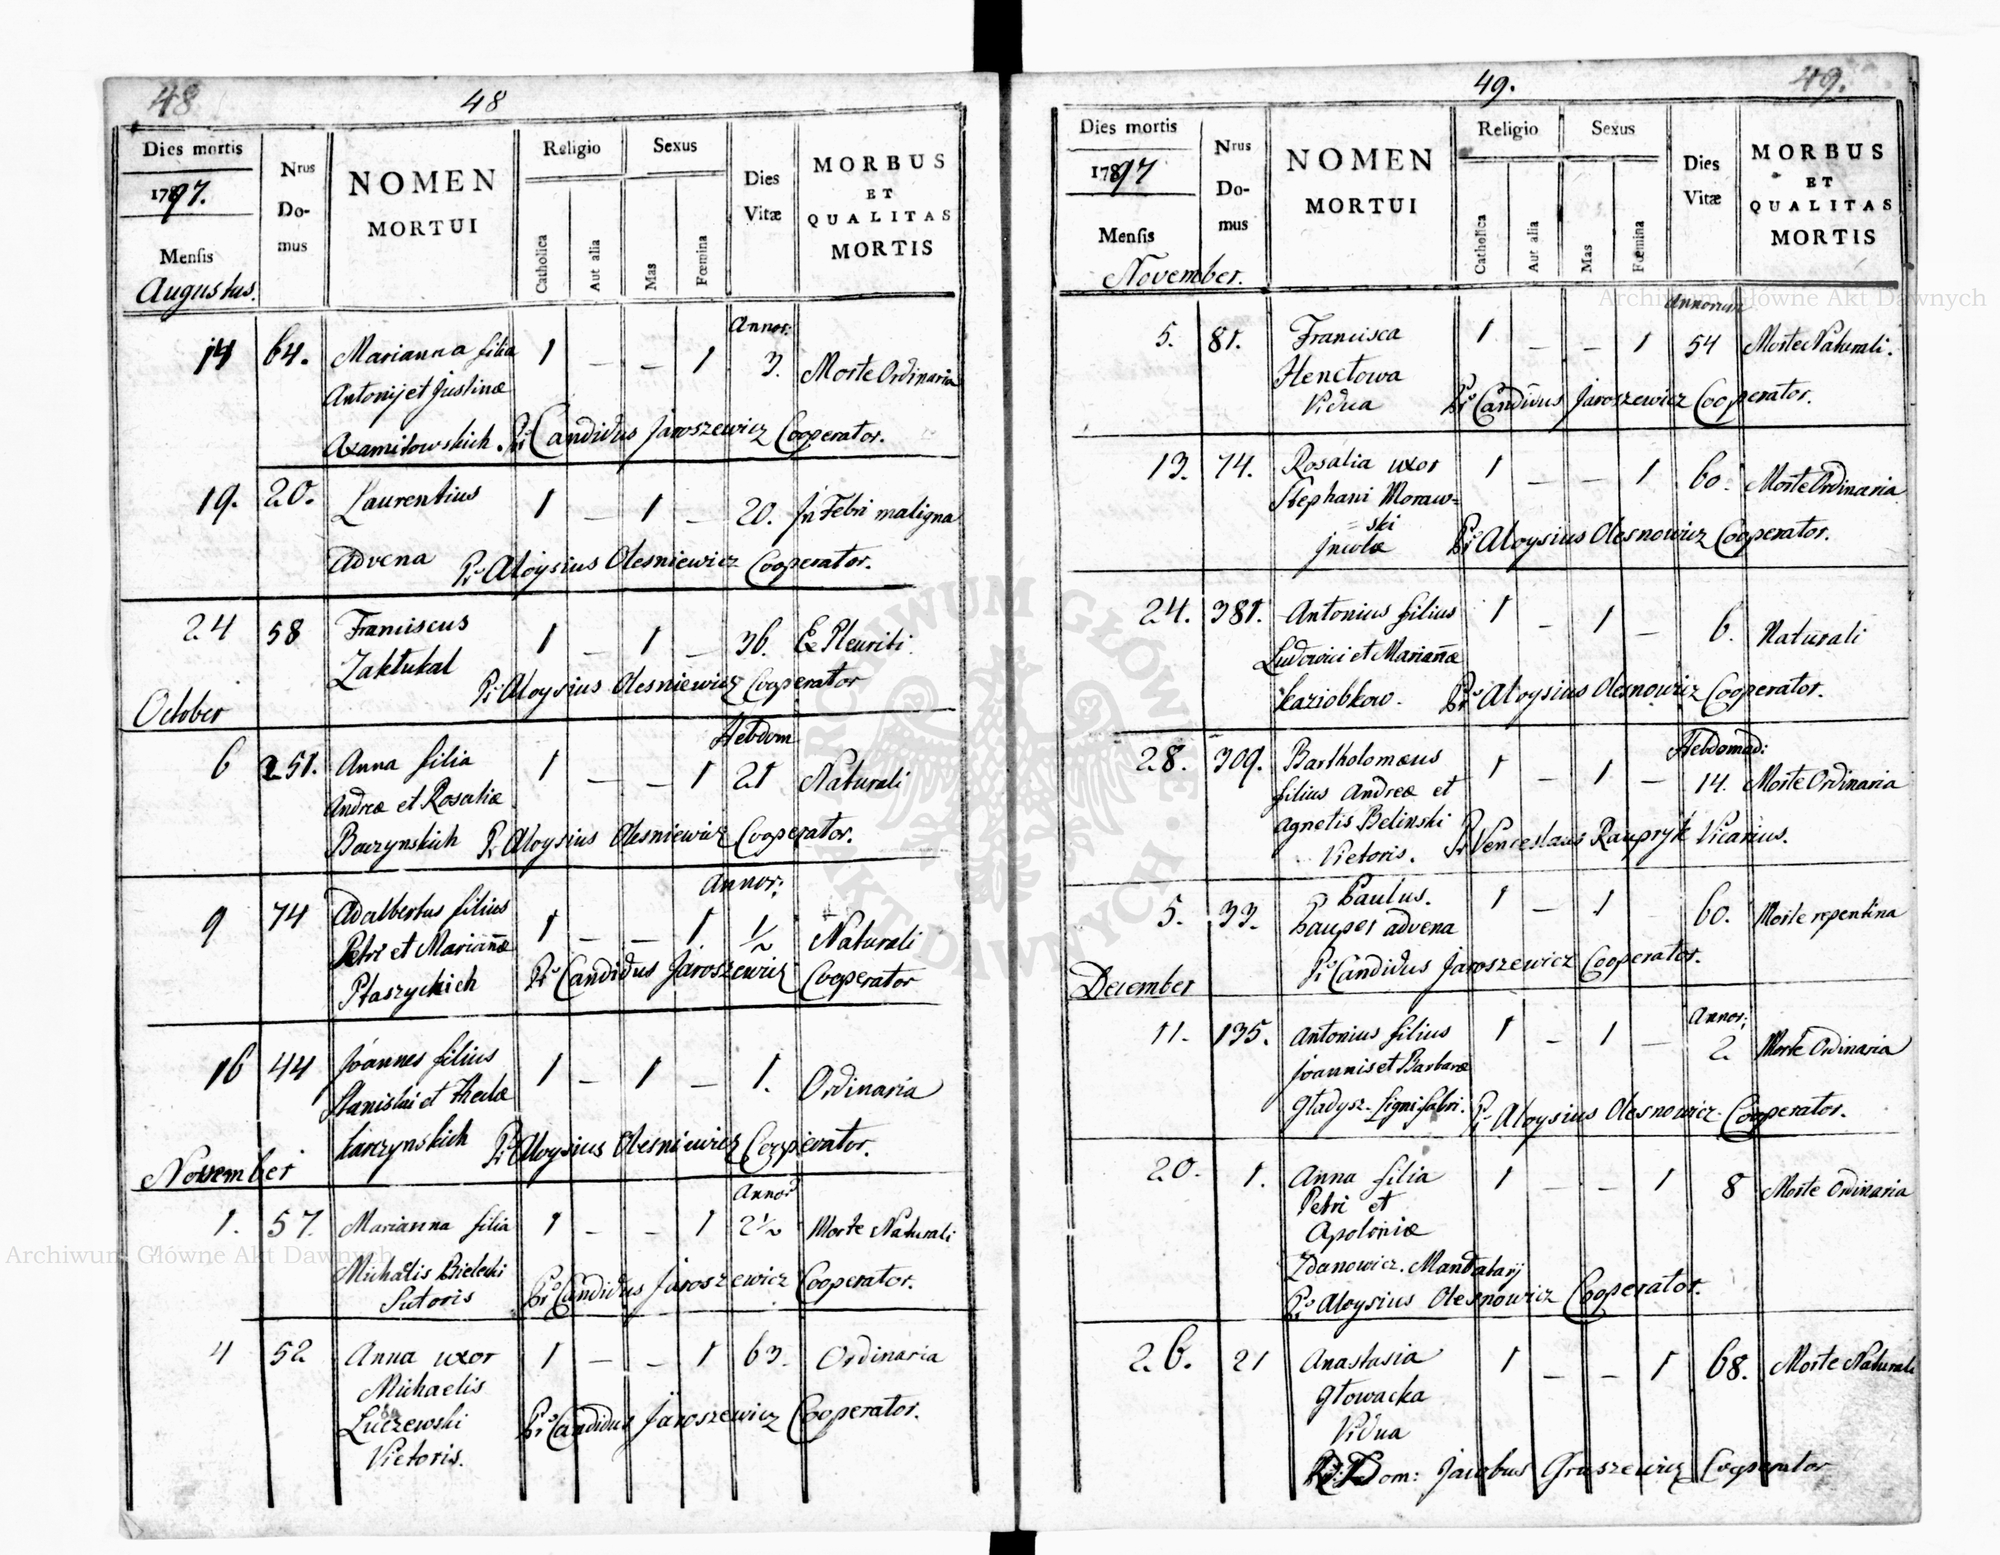 48
48
Dies mortis
1797.
Mensis
Augustus.
Nrus
Do-
mus
NOMEN
MORTUI
Religio
Catholica
Aut alia
Sexus
Mas
Fœmina
Dies
Vitæ
MORBUS
ET
QUALITAS
MORTIS
Annor:
14 64. Marianna filia 1 – – 1 3. Morte Ordinaria
Antonij et Justinæ
Axamitowskich. Pr Candidus Jaroszewicz Cooperator.
19. 20. Laurentius 1 – 1 – 20. In Febri maligna
Advena Pr Aloysius Olesniewicz Cooperator.
24 58 Franciscus 1 – 1 – 36. Ex Pleuriti.
Zaktukal Pr Aloysius Olesniewicz Cooperator
October
Hebdom
6 251. Anna filia 1 – – 1 21 Naturali
Andreæ et Rosaliæ
Baczynskich Pr Aloysius Olesniewicz Cooperator.
Annor:
9 74 Adalbertus filius 1 – – 1 1/2 Naturali
Petri et Mariañæ
Ptaszyckich Pr Candidus Jaroszewicz Cooperator
16 44 Joannes filius 1 – 1 – 1. Ordinaria
Stanislai et Theclæ
Karczynskich Pr Aloysius Olesniewicz Cooperator.
November
Annor
1. 57. Marianna filia 1 – – 1 2 1/2 Morte Naturali
Michaelis Bielecki
Sutoris Pr Candidus Jaroszewicz Cooperator.
4 52 Anna uxor 1 – – 1 63. Ordinaria
Michaelis
Luczewski Pr Candidus Jaroszewicz Cooperator.
Vietoris.
49.
49.
Dies mortis
1797
Mensis
November.
Nrus
Do-
mus
NOMEN
MORTUI
Religio
Catholica
Aut alia
Sexus
Mas
Fœmina
Dies
Vitæ
MORBUS
ET
QUALITAS
MORTIS
Annorum
5. 81. Francisca 1 – – 1 54 Morte Naturali.
Henctowa
Vidua Pr Candidus Jaroszewicz Cooperator.
13. 74. Rosalia uxor 1 – – 1 60. Morte Ordinaria
Stephani Moraw=
ski
Incolæ Pr Aloysius Olesnowicz Cooperator.
24. 381. Antonius filius 1 – 1 – 6. Naturali
Ludovici et Mariañæ
Kaziobkow. Pr Aloysius Olesnowicz Cooperator.
Hebdomad:
28. 309. Bartholomæus 1 – 1 – 14. Morte Ordinaria
filius Andreæ et
Agnetis Belinski
Vietoris. Pr Venceslaus Raupryk Vicarius.
5. 33. Paulus. 1 – 1 – 60. Morte repentina
Pauper advena
Pr Candidus Jaroszewicz Cooperator.
December
Annor:
11. 135. Antonius filius 1 – 1 – 2. Morte Ordinaria
Joannis et Barbaræ
Gładysz. Lignifabri. Pr Aloysius Olesnowicz Cooperator.
20. 1. Anna filia 1 – – 1 8 Morte Ordinaria
Petri et
Apoloniæ
Zdanowicz. Mandatarij
Pr Aloysius Olesnowicz Cooperator.
26. 21 Anastasia 1 – – 1 68. Morte Naturali
Głowacka
Vidua
Dom: Jacobus Gruszewicz Cooperator
Archiwum Główne Akt Dawnych
Archiwum Główne Akt Dawnych
ARCHIWUM GŁÓWNE AKT DAWNYCH